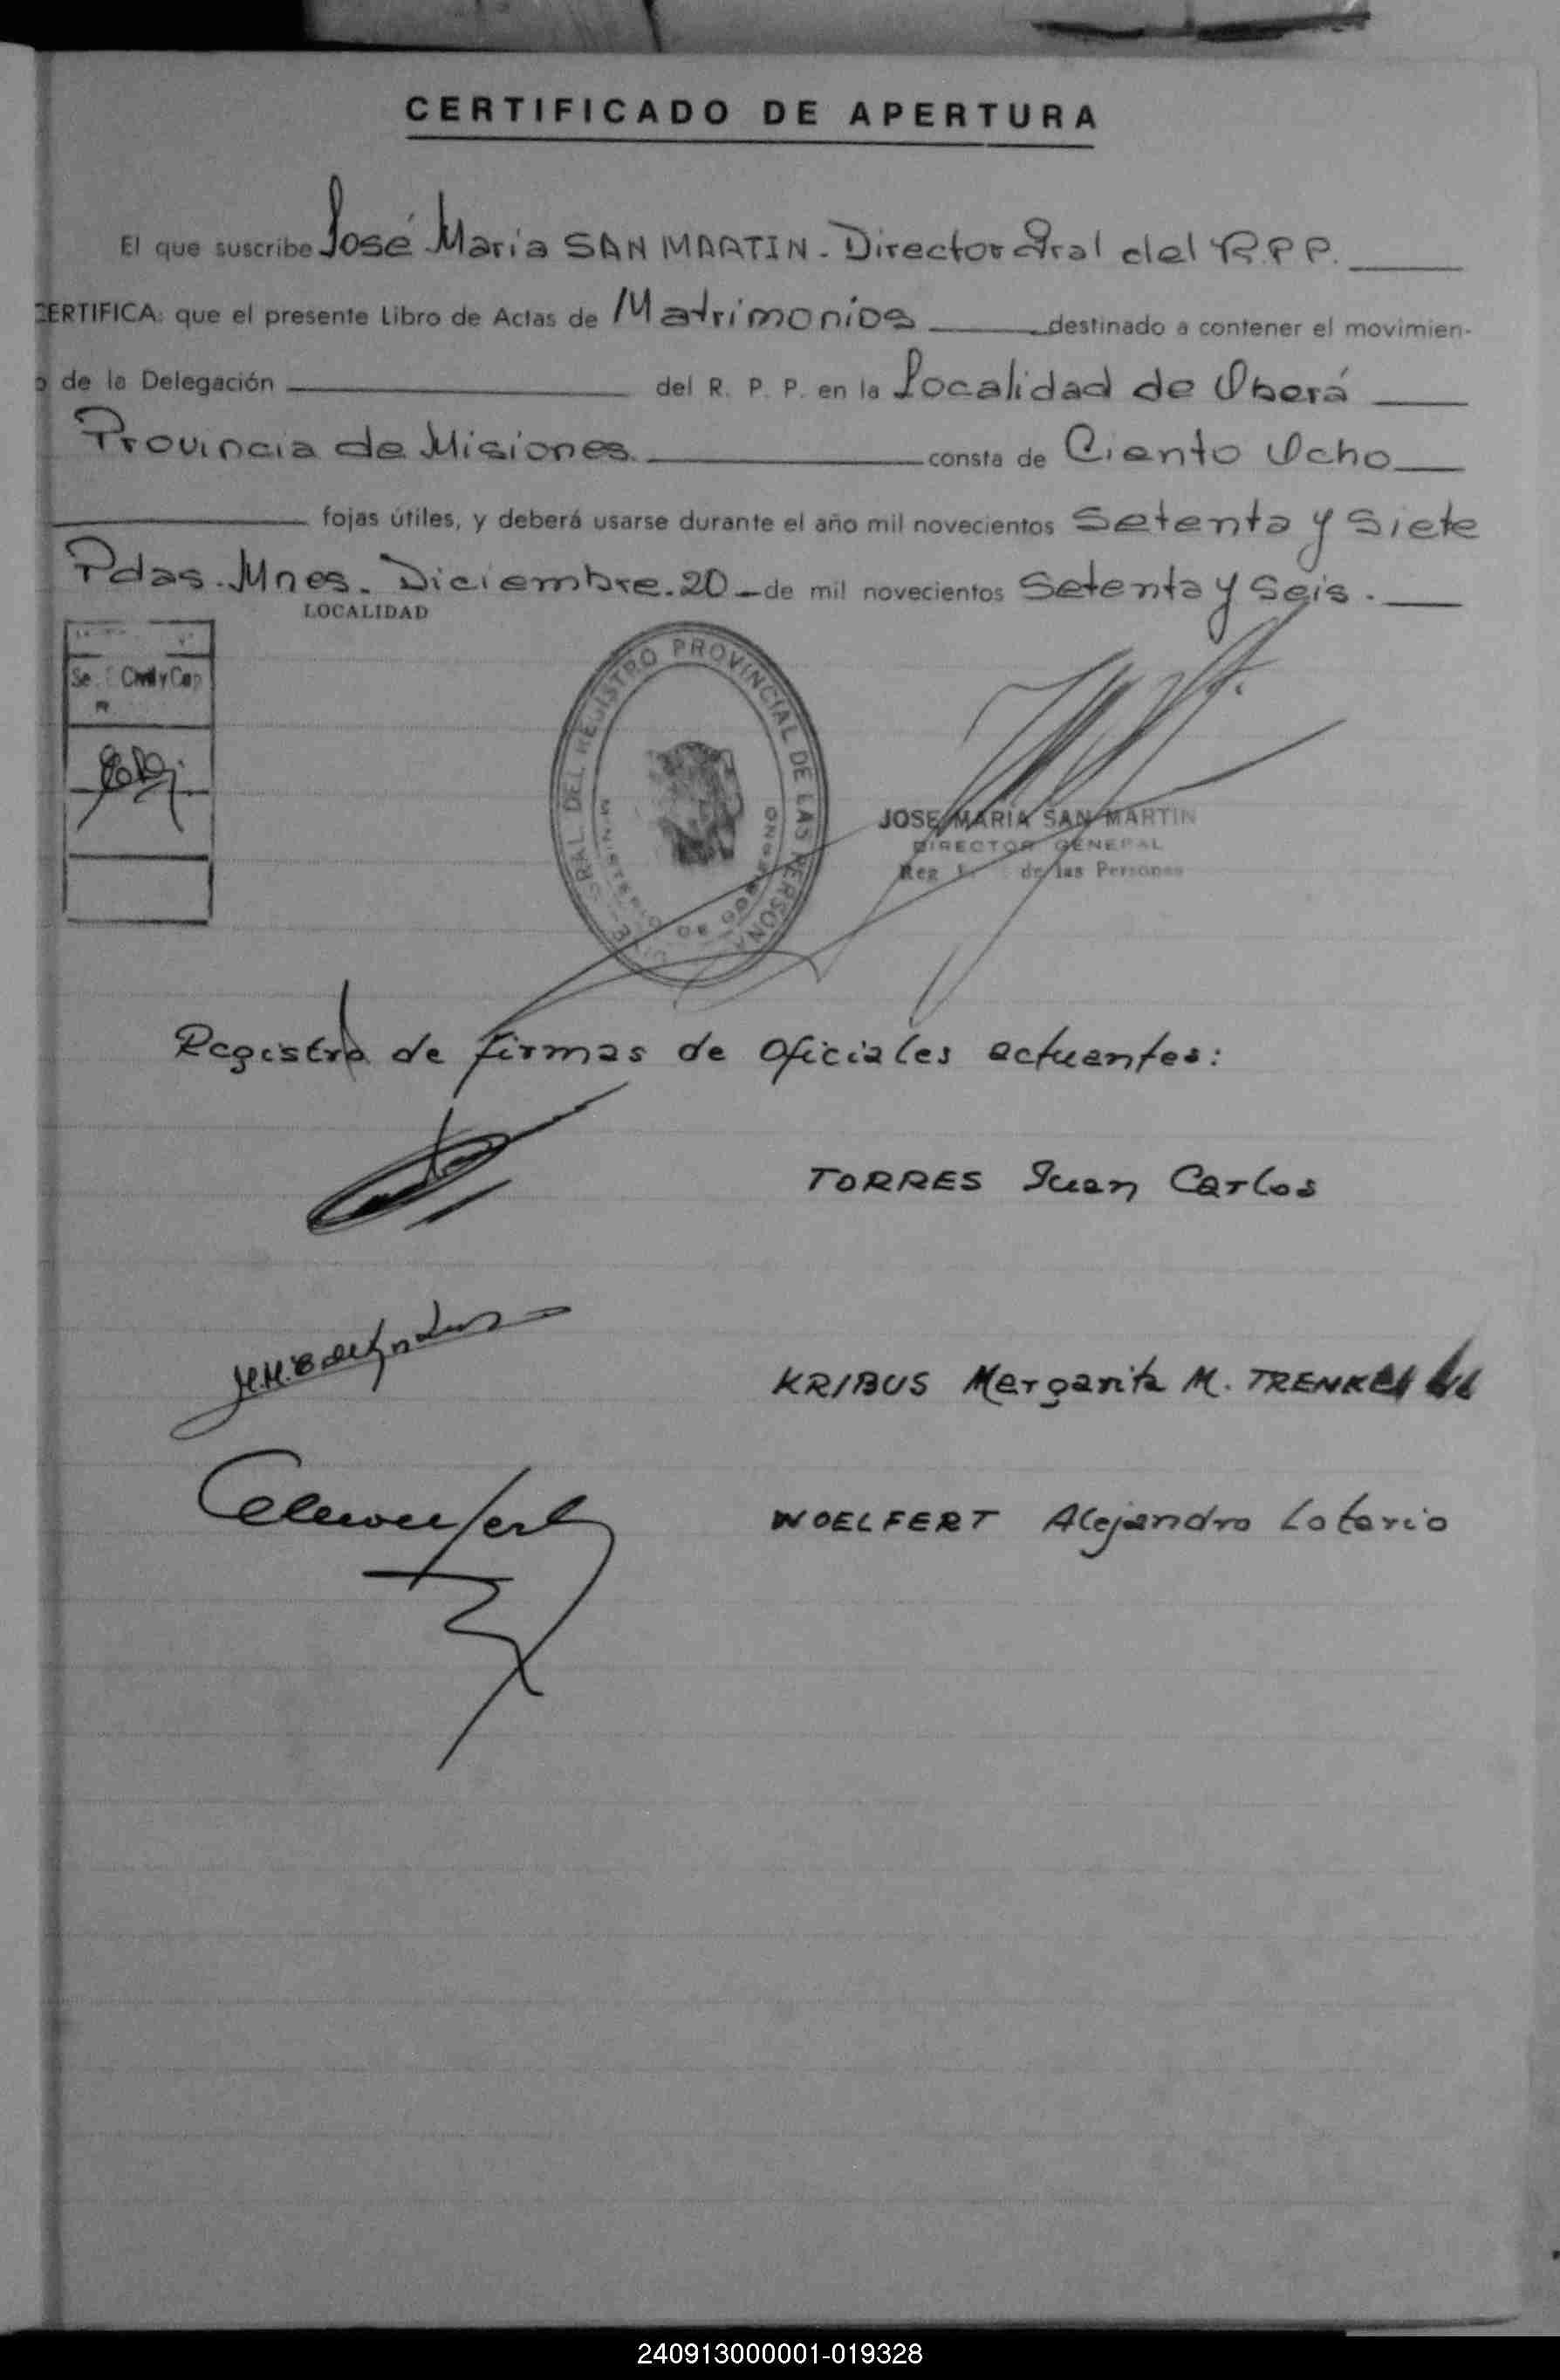 CERTIFICADO DE APERTURA
El que suscribe José Maria SAN MARTIN - Director Gral del R.P.P.
CERTIFICA: que el presente Libro de Actas de Matrimonios destinado a contener el movimien-
o de la Delegación del R. P. P. en la Localidad de Oberá
Provincia de Misiones. consta de Ciento Ocho
fojas útiles, y deberá usarse durante el año mil novecientos Setenta y Siete
Pdas. Mnes. Diciembre. 20 - de mil novecientos Setenta y Seis.
LOCALIDAD
Civil y Cap
REGISTRO PROVINCIAL DE LAS PERSONAS
MINISTERIO DE GOBIERNO
JOSE MARIA SAN MARTIN
DIRECTOR GENERAL
Reg de las Personas
Registro de firmas de Oficiales actuantes:
TORRES Juan Carlos
KRIBUS Margarita M. TRENK
WOELFERT Alejandro Lotario
240913000001-019328